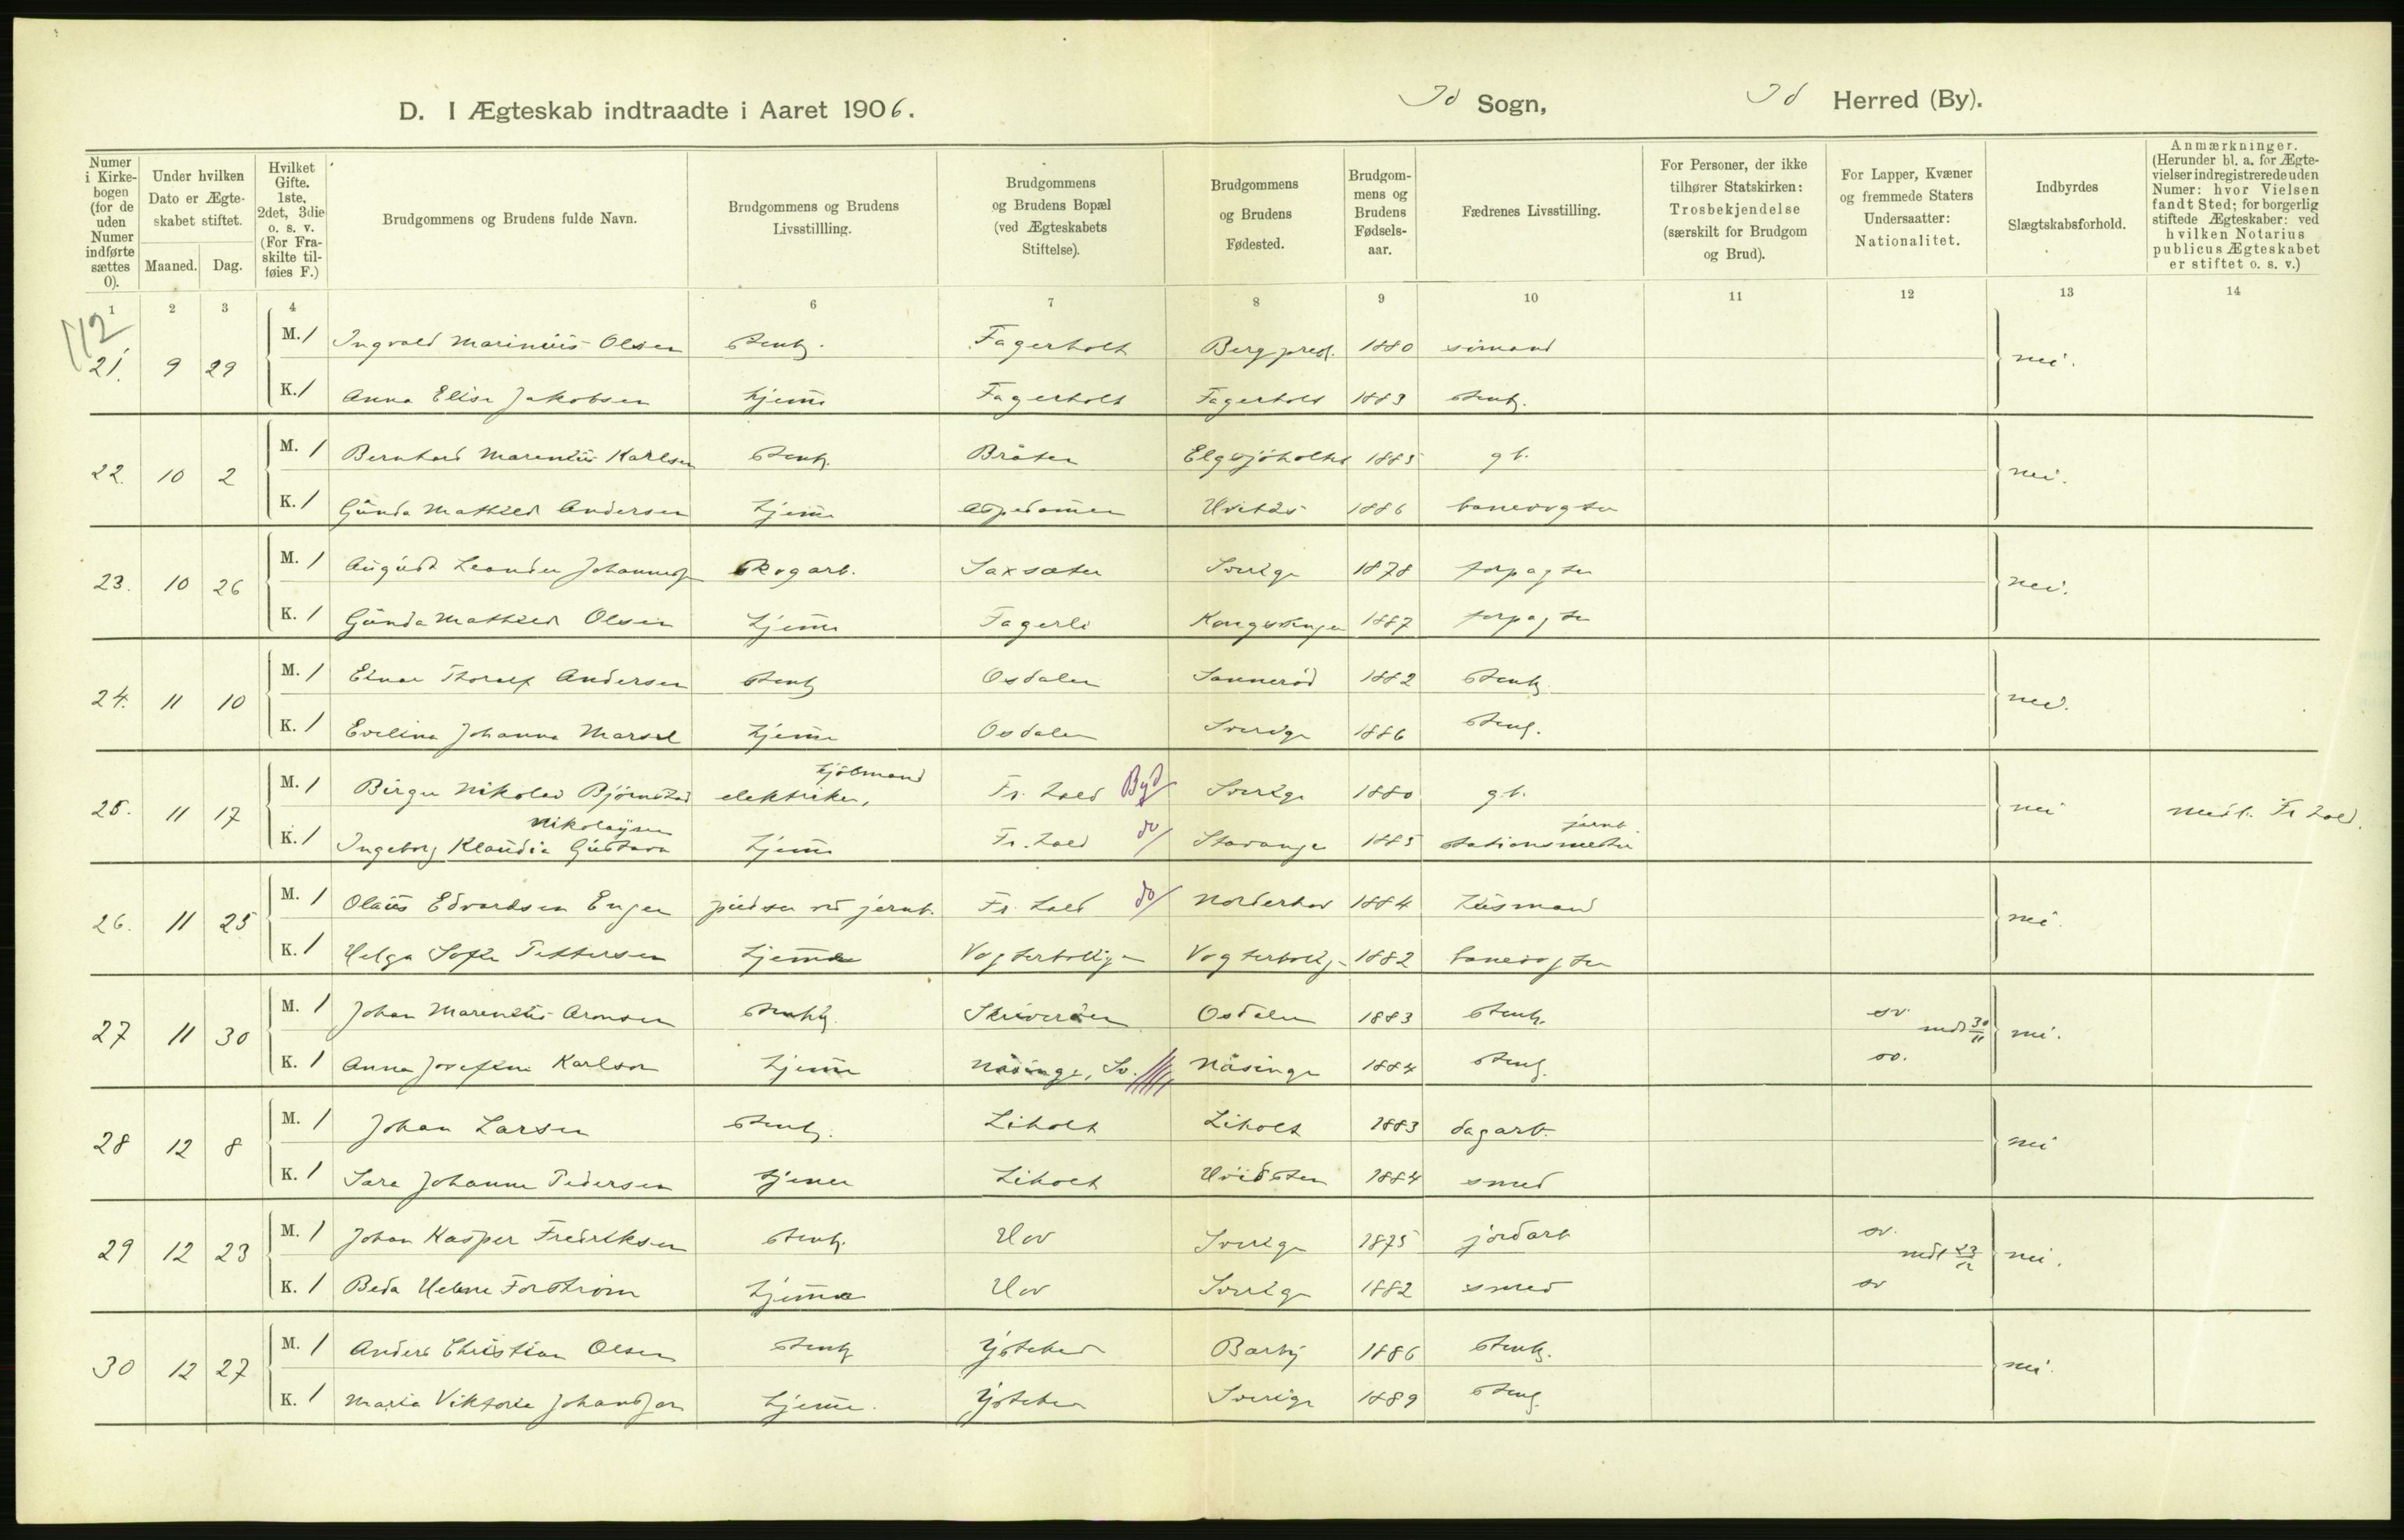 D. I Ægteskab indtraadte i Aaret 1906. Id Sogn, Id Herred (By).
Numer i Kirkebogen (for de uden Numer indførte sættes 0).
Under hvilken Dato er Ægteskabet stiftet.
Maaned. Dag.
Hvilket Gifte. 1ste, 2det, 3die o. s. v. (For Fraskilte tilføies F.)
Brudgommens og Brudens fulde Navn.
Brudgommens og Brudens Livsstillling.
Brudgommens og Brudens Bopæl (ved Ægteskabets Stiftelse).
Brudgommens og Brudens Fødested.
Brudgommens og Brudens Fødselsaar.
Fædrenes Livsstilling.
For Personer, der ikke tilhører Statskirken: Trosbekjendelse (særskilt for Brudgom og Brud).
For Lapper, Kvæner og fremmede Staters Undersaatter: Nationalitet.
Indbyrdes Slægtskabsforhold.
Anmærkninger. (Herunder bl. a. for Ægtevielser indregistrerede uden Numer: hvor Vielsen fandt Sted; for borgerlig stiftede Ægteskaber: ved hvilken Notarius publicus Ægteskabet er stiftet o. s. v.)
1 2 3 4 6 7 8 9 10 11 12 13 14
112
21. 9 29 M. 1 Ingvald Marinius Olsen stenh. Fagerholt Berg præst. 1880 sømand nei.
K. 1 Anna Elise Jakobsen hjemme Fagerholt Fagerholt 1883 stenh.
22. 10 2 M. 1 Bernhard Marentius Karlsen stenh. Bråten Elgsjøholtet 1885 gb. nei.
K. 1 Gunda Mathild Andersen hjemme Aspedammen 1886 banevogter
23. 10 26 M. 1 August Leander Skogarb. Saxsæter Sverige 1878 forpagter nei.
K. 1 Gunda Mathild Olsen hjemme Fagerli Kongsvinger 1887 forpagter
24. 11 10 M. 1 Einar Thoralf Andersen stenh Osdalen Sannerød 1882 stenh. nei.
K. 1 Evelina Johanna hjemme Osdalen Sverige 1886 stenh.
25. 11 17 M. 1 Birger Nikolai Bjørnstad elektriker, kjøbmand Fr. hald Byd Sverige 1880 gb. nei Medd. Fr. hald.
K. 1 Ingeborg Klaudia Gustava Nikolaysen hjemme Fr. hald do Stavanger 1885 jernb. stationsmester
26. 11 25 M. 1 Olaus Edvardsen Enger pudser ved jernb. Fr. hald do Norderhov 1884 husmand nei.
K. 1 Helga Sofie Pettersen hjemme Vogterboligen Vogterbolig 1882 banevogter
27 11 30 M. 1 Johan Marentius Aronsen stenh. Skriverøen Osdalen 1883 stenh. sv. medd 30/11 nei.
K. 1 Anna Josefine Karlson hjemme Näsinge, Sv. Näsinge 1884 stenh. sv.
28 12 8 M. 1 Johan Larsen stenh. Liholt Liholt 1883 dagarb. nei
K. 1 Sara Johanne Pedersen hjemme Liholt Hvidsten 1884 smed
29 12 23 M. 1 Johan Kasper Fredriksen stenh. Hov Sverige 1875 jordarb sv. medd 23/12 nei.
K. 1 Beda Helene Forström hjemme Hov Sverige 1882 smed sv
30 12 27 M. 1 Anders Christian Olsen stenh Bakke 1886 stenh. nei.
K. 1 Maria Viktoria Johansson hjemme. Sverige 1889 stenh.